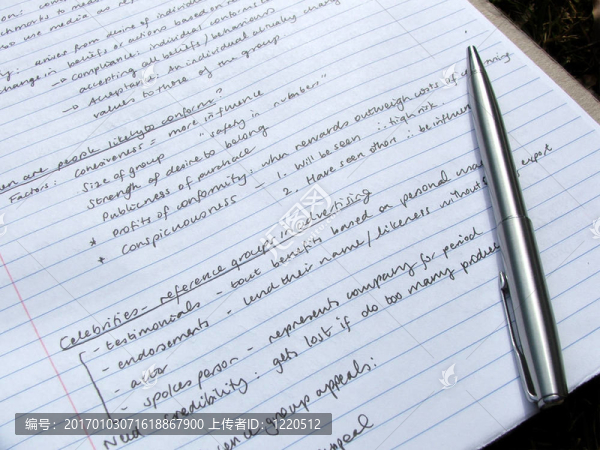 chments to media
use media as re
arises from desire of individual
change in beliefs or actions based on re
→ compliance: individual conforms to
accepting all beliefs/behaviours
→ Acceptance: An individual actually chang
values to those of the group.
en are people likely to conform?
Factors: Cohesiveness = more influence
Size of group "safety in numbers"
Strength of desire to belong
Publicness of purchase
* Profits of conformity: when rewards outweigh costs of
* Conspicuousness - 1. Will be seen ∴ high risk.
2. Have seen others ∴ be influen
Celebrities - reference groups in advertising
- testimonials - tout benefits based on personal
- endorsements - lend their name/likeness without expert
- actor
- spokesperson - represents company for period
Need credibility: gets lost if do too many produc
ence group appeals:
ppeal
编号:20170103071618867900 上传者ID:1220512